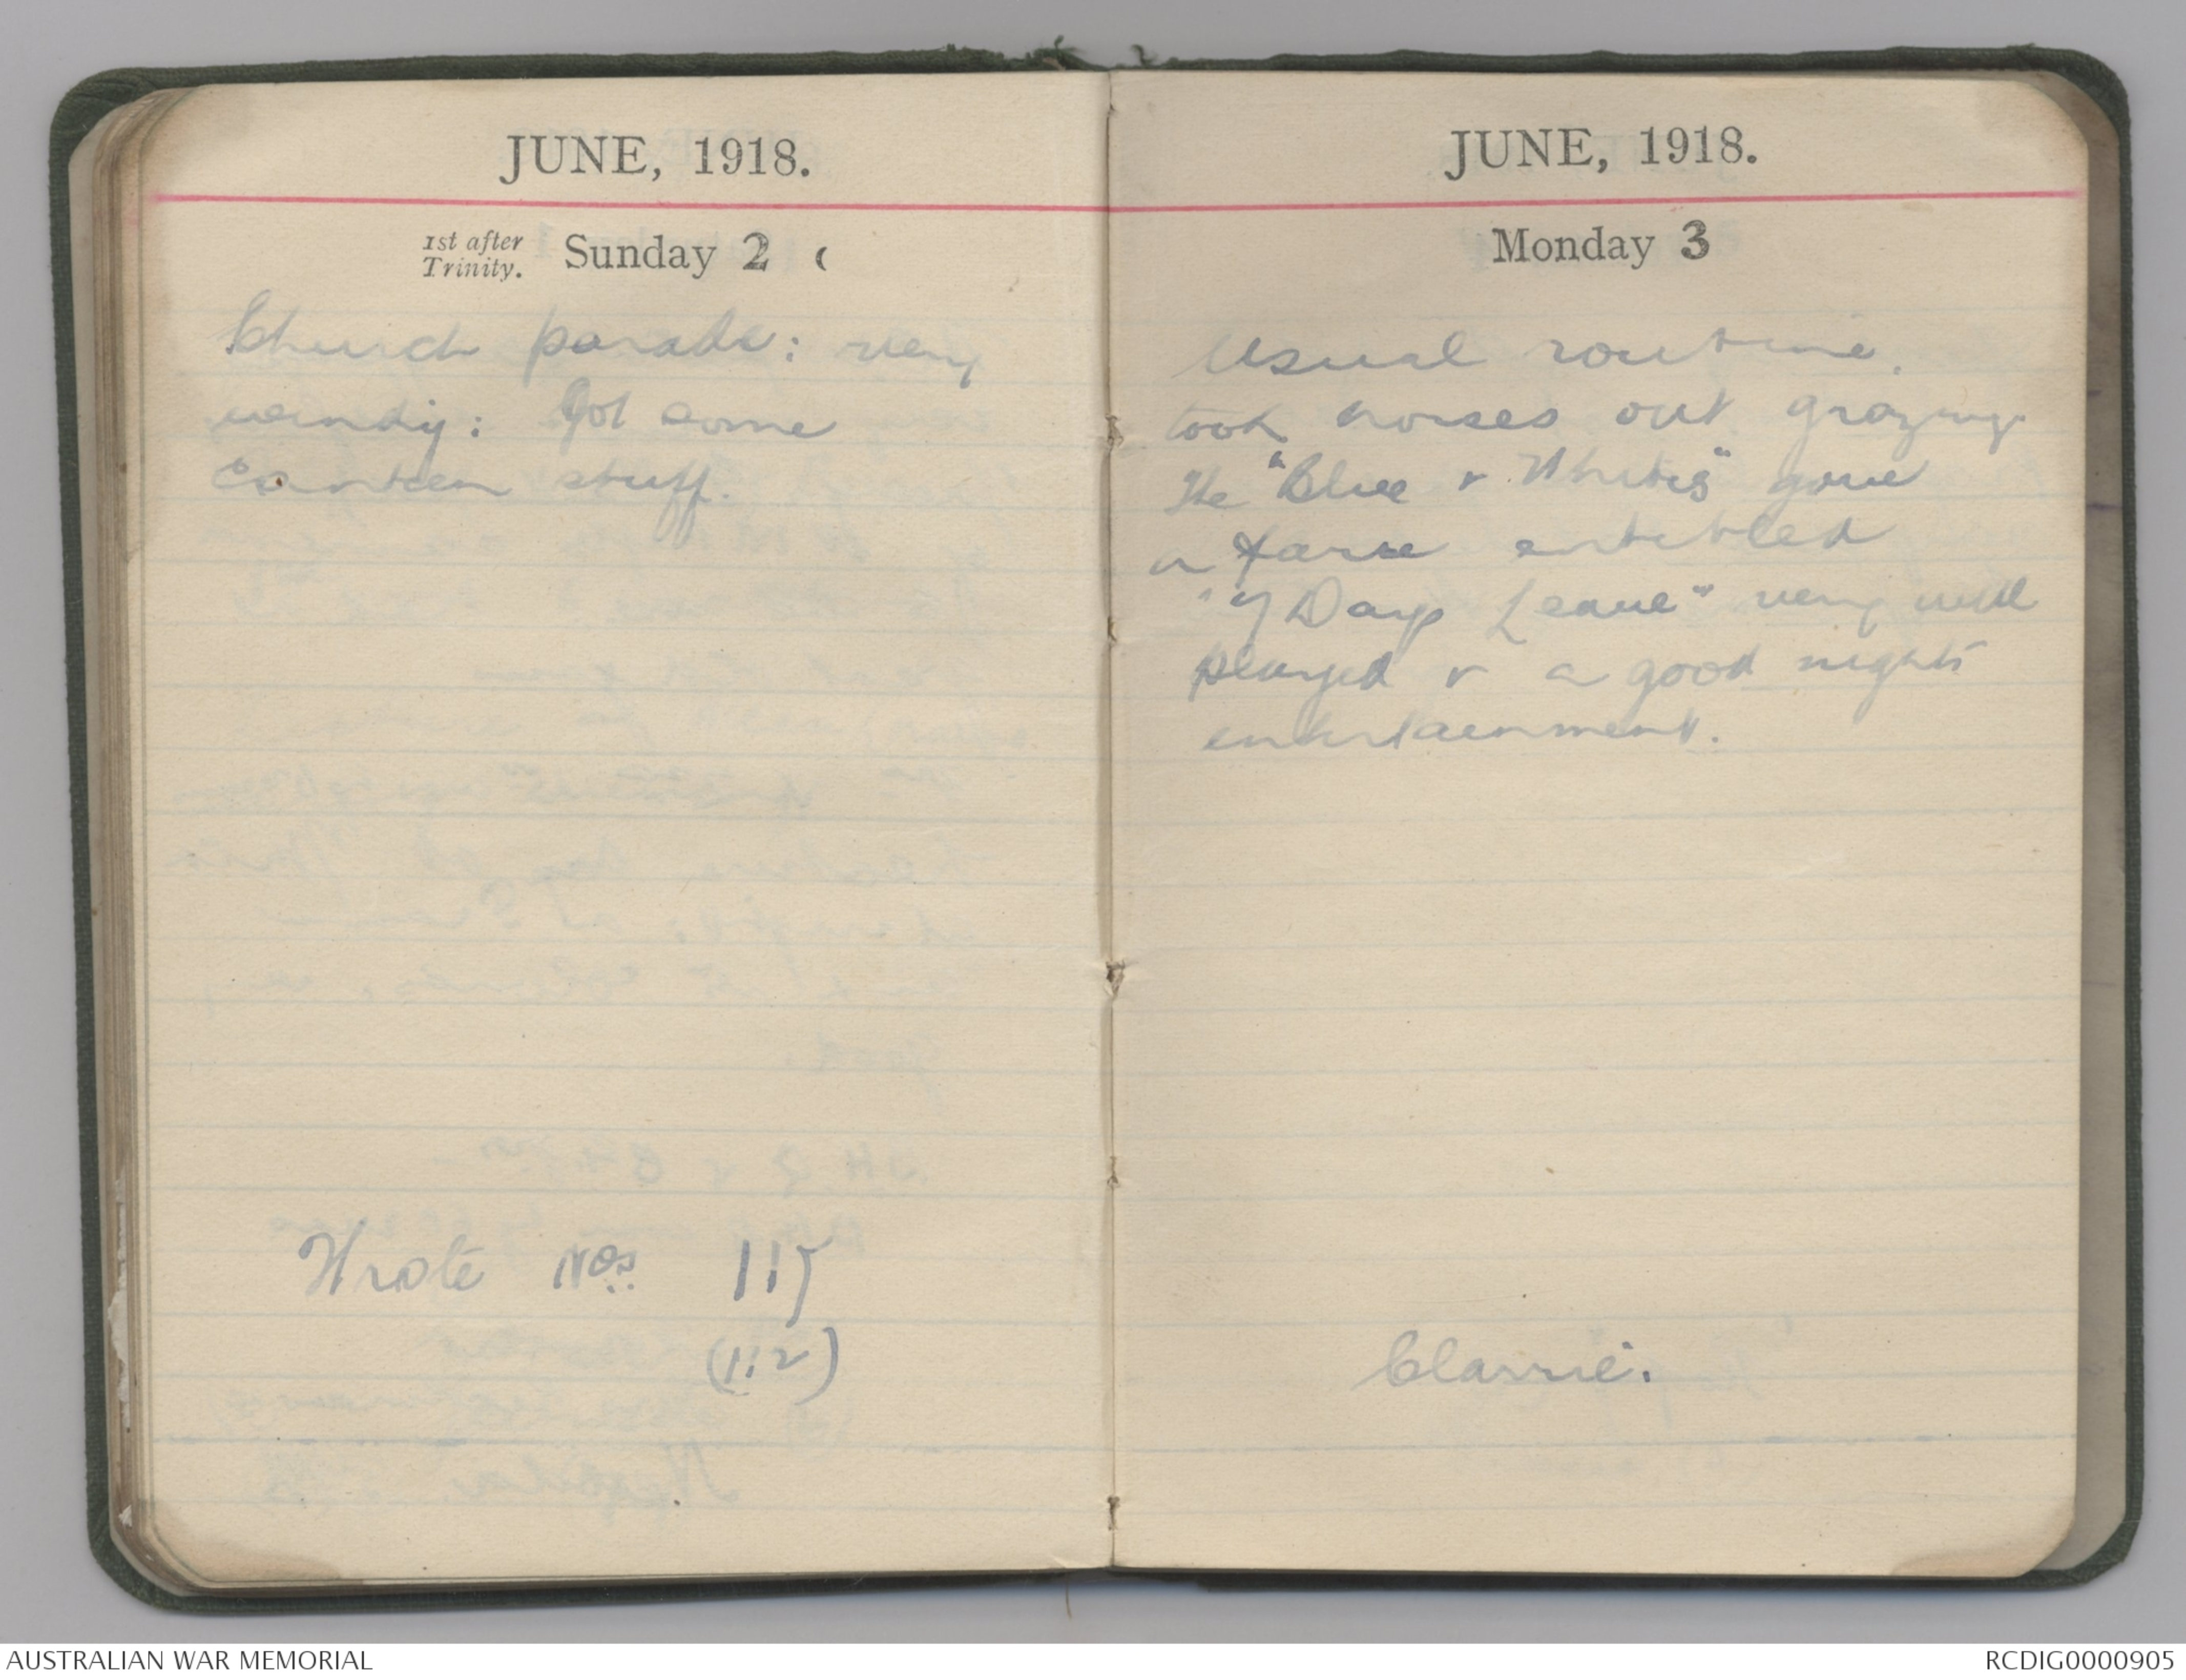 JUNE, 1918.
1st after
Trinity.
Sunday 2 (
Church parade: very
windy: Got some
Canteen stuff.
Wrote Nos. 115
(112)
JUNE, 1918.
Monday 3
Usual routine.
took horses out grazing.
The "Blue & Whites" gave
a farce entitled
"7 Days Leave" very well
played & a good nights
entertainment.
Clarrie.
AUSTRALIAN WAR MEMORIAL
RCDIG0000905